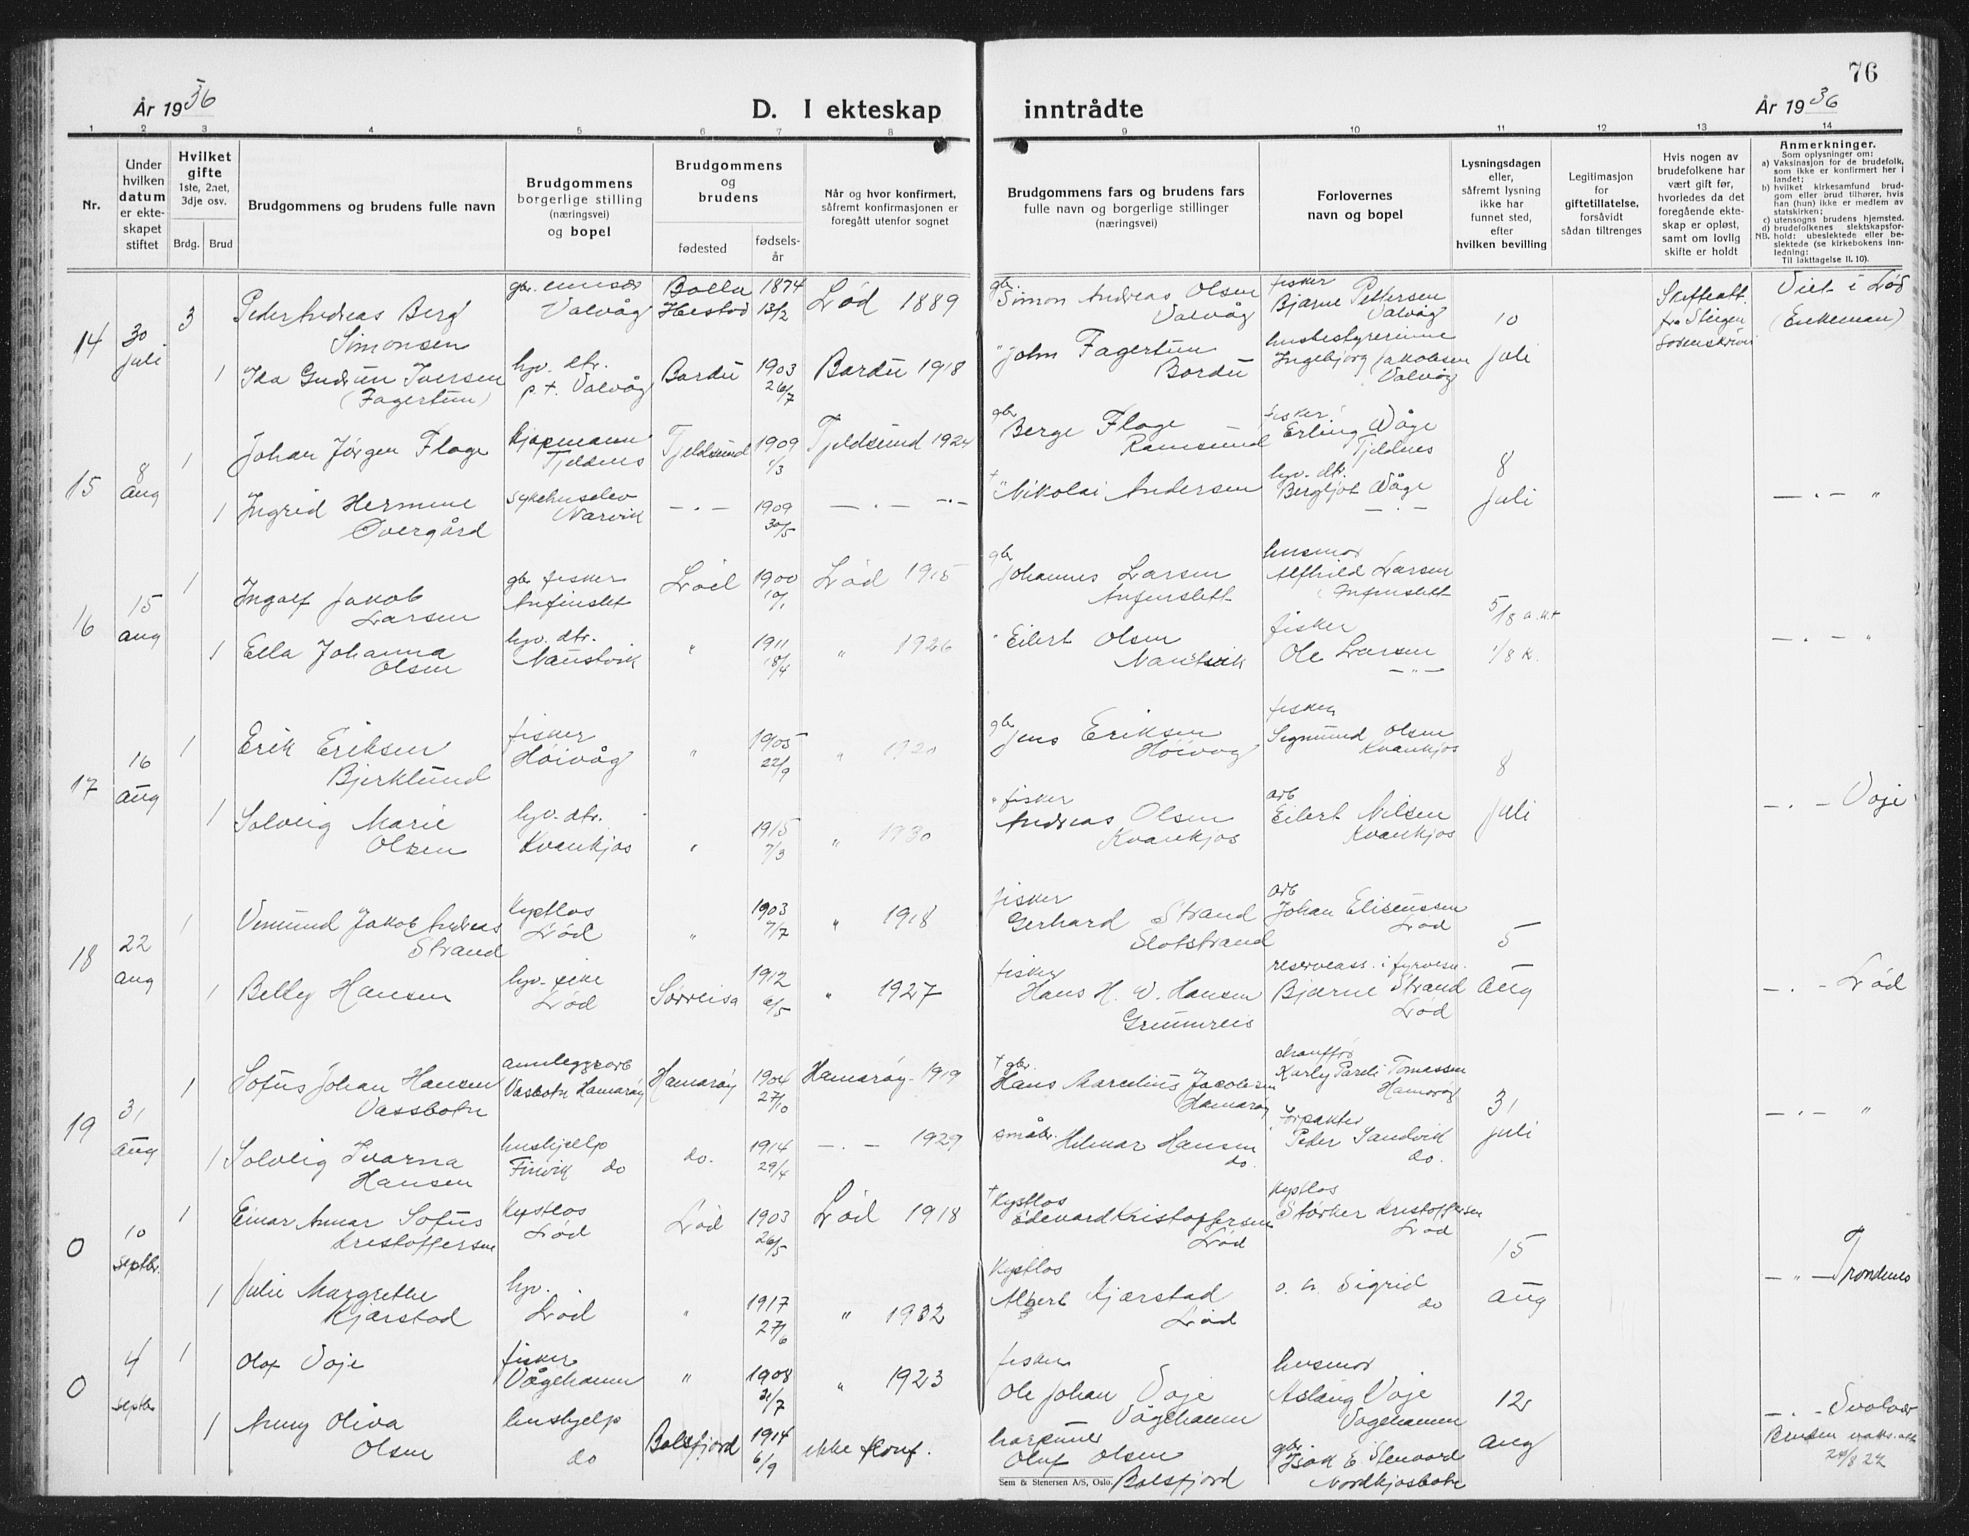 76
År 1936
D. I ekteskap
inntrådte
År 1936
1 2 3 4 5 6 7 8 9 10 11 12 13 14
Nr.
Under
hvilken
datum
er ekte-
skapet
stiftet
Hvilket
gifte
1ste, 2net,
3dje osv.
Brdg. Brud
Brudgommens og brudens fulle navn
Brudgommens
borgerlige stilling
(næringsvei)
og bopel
Brudgommens
og
brudens
fødested
fødsels-
år
Når og hvor konfirmert,
såfremt konfirmasjonen er
foregått utenfor sognet
Brudgommens fars og brudens fars
fulle navn og borgerlige stillinger
(næringsvei)
Forlovernes
navn og bopel
Lysningsdagen
eller,
såfremt lysning
ikke har
funnet sted,
efter
hvilken bevilling
Legitimasjon
for
giftetillatelse,
forsåvidt
sådan tiltrenges
Hvis nogen av
brudefolkene har
vært gift før,
hvorledes da det
foregående ekte-
skap er opløst,
samt om lovlig
skifte er holdt
Anmerkninger.
Som oplysninger om:
a) Vaksinasjon for de brudefolk,
som ikke er konfirmert her i
landet;
b) hvilket kirkesamfund brud-
gom eller brud tilhører, hvis
han (hun) ikke er medlem av
statskirken;
c) utensogns brudens hjemsted.
d) brudefolkenes slektskapsfor-
hold: ubeslektede eller be-
slektede (se kirkebokens inn-
ledning;
NB. Til iakttagelse II. 10).
14
30
juli
3
Peder Andreas Berg
Simonsen
Valvåg
1874
13/2
Lød 1889
gbr.
Simon Andreas Olsen
Valvåg
fisker
Bjarne Pettersen
Valvåg
10
juli
Viet i Lød
(Enkeman)
1
Ida Gudrun Iversen
(Fagertun)
hjv. dtr.
p.t. Valvåg
Bardu
1903
26/7
Bardu 1918
" John Fagertun
Bardu
husbestyrerinne
Ingebjørg Jakobsen
Valvåg
15
8
aug
1
Johan Jørgen Flage
kjøpmann
Tjeldnes
Tjeldsund
1909
1/3
Tjeldsund 1924
gbr
Berge Flage
Ramsund
fisker
Erling Våge
Tjeldnes
8
juli
1
Ingrid Hermine
Overgård
sykehuselev
Narvik
— . —
1909
30/5
— . — — . —
" Nikolai Andersen
hjv. dtr.
Bergljot Våge
— . —
— . — "
16
15
aug
1
Ingolf Jakob
Larsen
gbr fisker
Anfinslet
1900
10/1
Lød 1915
gbr
Johannes Larsen
Anfinslett
husmor
Alfhild Larsen
Anfinslett
1
Ella Johanna
Olsen
hjv. dtr.
Naustvik
"
1911
18/4
" 1926
Eilert Olsen
Naustvik
fisker
Ole Larsen
— " —
1/8 k.
— . — "
17
16
aug
1
Erik Eriksen
Bjerklund
fisker
Høivåg
"
1905
22/9
" 1920
gbr
Jens Eriksen
Høivåg
fisker
Sigmund Olsen
Kvankjos
8
juli
1
Solveig Marie
Olsen
hjv. dtr.
Kvankjos
"
1915
7/3
" 1930
" fisker
Andreas Olsen
Kvankjos
arb
Eilert Nilsen
Kvankjos
— . — Voje
18
22
aug
1
Vemund Jakob Andreas
Strand
kystlos
Lød
"
1903
7/7
" 1918
fisker
Gerhard Strand
Slotstrand
arb
Johan Eliseussen
Lød
5
aug
1
Belly Hansen
Lød
Sørreisa
1912
6/5
" 1927
fisker
Hans H. W. Hansen
reserveass. i fyrvesn.
Bjarne Strand
Lød
— . — Lød
19
31
aug
1
Sofus Johan Hansen
Vassbotn
anleggsarb
Vasbotn Hamarøy
Hamarøy
1904
27/10
Hamarøy 1919
† gbr.
Hans Marcelius Jacobsen
Hamarøy
chauffør
Karly Pareli Tomassen
Hamarøy
31
juli
1
Solveig Ivarna
Hansen
hushjelp
Finvik do
do.
1914
29/4
— . — 1929
småbr. Hilmar Hansen
do.
forpakter
Peder Sandvik
do.
— . — "
0
10
septbr.
1
Einar Annar Sofus
Kristoffersen
kystlos
Lød
Lød
1903
26/5
Lød 1918
† Kystlos
Edevard Kristoffersen
Lød
kystlos
Størker Kristoffersen
Lød
15
aug
1
Julie Margrethe
Kjærstad
hjv.
Lød
"
1917
27/6
" 1932
Kystlos
Albert Kjærstad
Lød
s. h. Sigrid
do
— " — Trondenes
0
4
septbr
1
Olaf Voje
fisker
Vågehamn
"
1908
21/7
" 1923
fisker
Ole Johan Voje
Vågehamn
husmor
Aslaug Voje
Vågehamn
12
aug
1
Anny Oliva
Olsen
hushjelp
do
Balsfjord
1914
6/9
ikke konf.
harpuner
Oluf Olsen
Balsfjord
gbr
Isak E Stenvord
Nordkjosbotn
— . — Svolvær
Bruden vaks. att.
24/8 22
Sem & Stenersen A/S, Oslo.